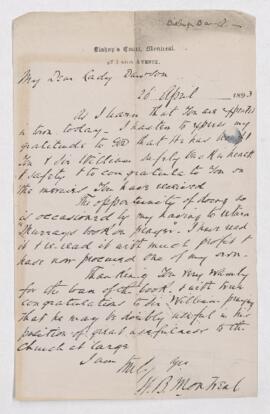 Bishop's Court, Montreal.
My Dear Lady Dawson
26 April 1893
As I learn that You are expected
in town today. I hasten to express my
gratitude to God that He has brought
You & Sir William safely back in health
& safety. & to congratulate You on
the mercies You have received
The opportunity of doing so
is occasioned by my having to return
"Murray's book on prayer". I have read
it & re.read it with much profit &
have now procured one of my own.
Thanking You very warmly
for the loan of the book, & with true
congratulations to Sir William, praying
that he may be doubly useful in his
position of great usefulness to the
Church at large
I am
truly Yrs
W. B. Montreal